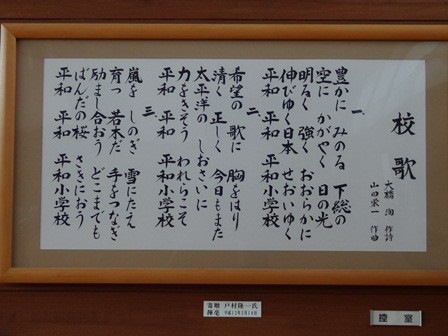 校歌
大橋 洵 作詩
山口栄一 作曲
一、
豊かに みのる 下総の
空に かがやく 日の光
明るく 強く おおらかに
伸びゆく日本 せおいゆく
平和 平和 平和小学校
二、
希望の 歌に 胸をはり
清く 正しく 今日もまた
太平洋の しおさいに
力をきそう われらこそ
平和 平和 平和小学校
三、
嵐を しのぎ 雪にたえ
育つ 若木だ 手をつなぎ
励まし合おう どこまでも
ばんだの桜 さきにおう
平和 平和 平和小学校
寄贈 戸村隆一氏
控室